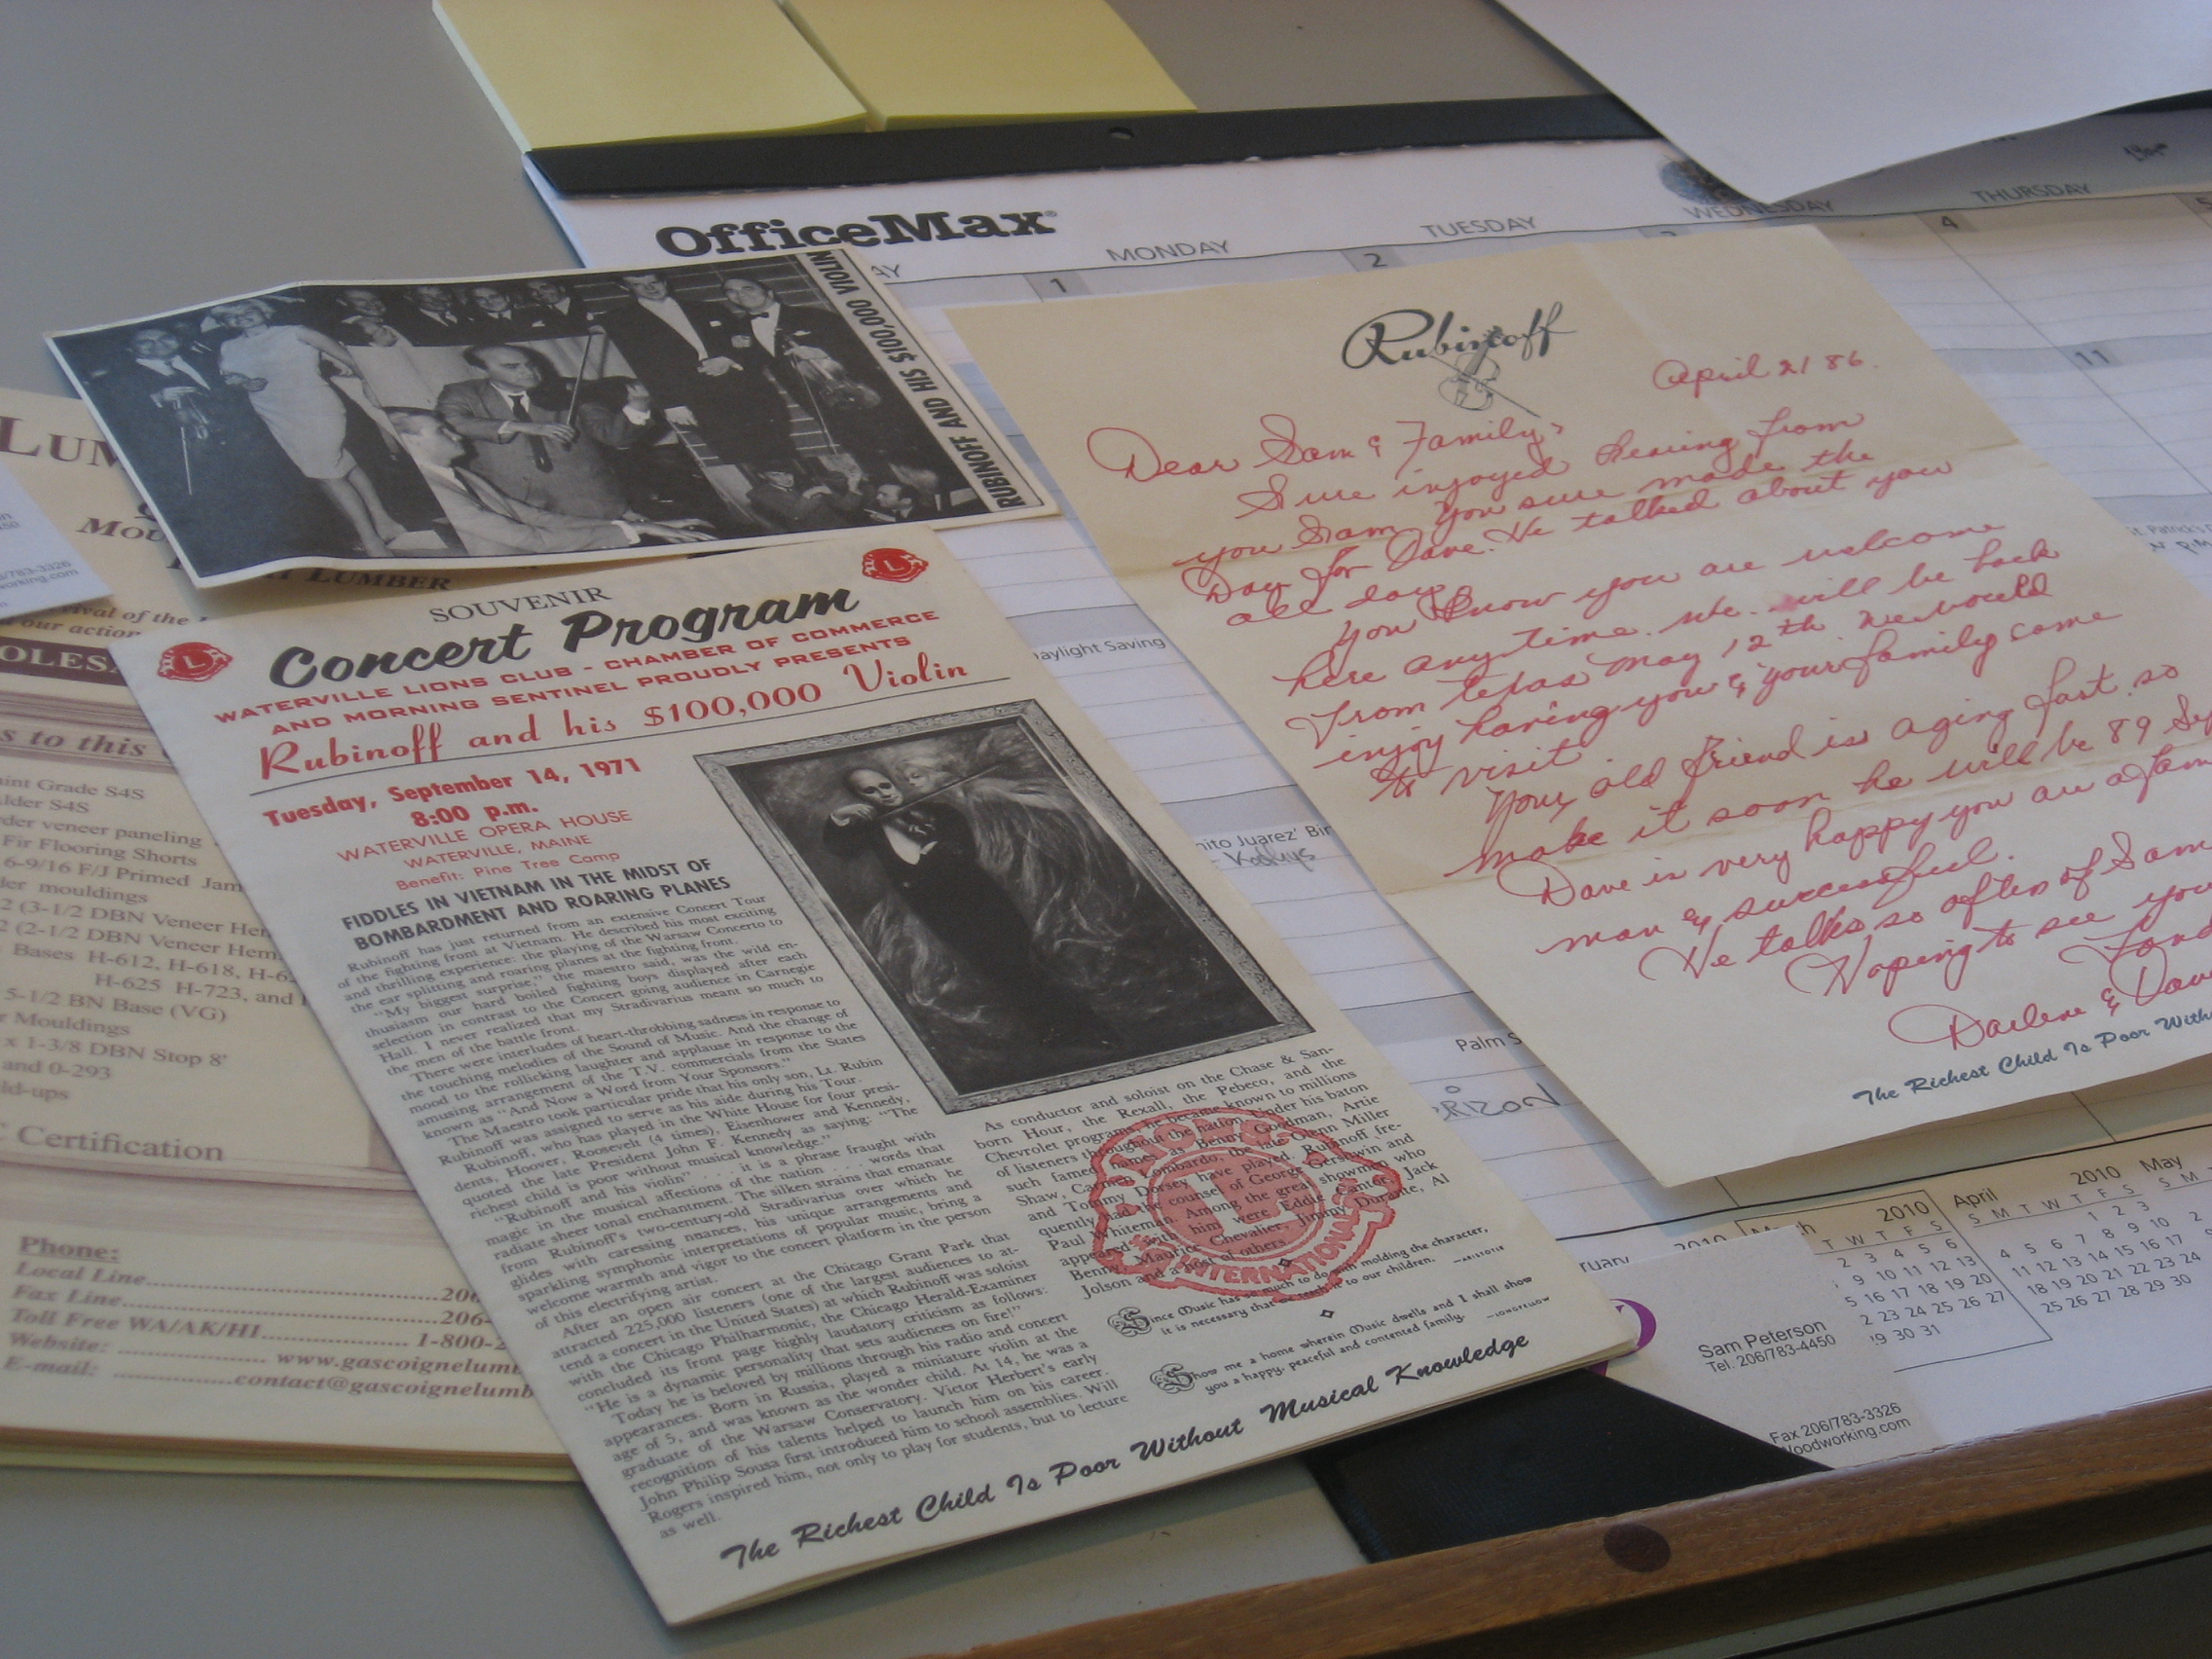 OfficeMax
MONDAY
TUESDAY
WEDNESDAY
THURSDAY
1
2
4
11
RUBINOFF AND HIS $100,000 VIOLIN
SOUVENIR
Concert Program
WATERVILLE LIONS CLUB - CHAMBER OF COMMERCE
AND MORNING SENTINEL PROUDLY PRESENTS
Rubinoff and his $100,000 Violin
Tuesday, September 14, 1971
8:00 p.m.
WATERVILLE OPERA HOUSE
WATERVILLE, MAINE
Benefit: Pine Tree Camp
FIDDLES IN VIETNAM IN THE MIDST OF
BOMBARDMENT AND ROARING PLANES
Rubinoff has just returned from an extensive Concert Tour
of the fighting front at Vietnam. He described his most exciting
and thrilling experience: the playing of the Warsaw Concerto to
the ear splitting and roaring planes at the fighting front.
"My biggest surprise," the maestro said, was the wild en-
thusiasm our hard boiled fighting boys displayed after each
selection in contrast to the Concert going audience in Carnegie
Hall. I never realized that my Stradivarius meant so much to
the men of the battle front.
There were interludes of heart-throbbing sadness in response to
the touching melodies of the Sound of Music. And the change of
mood to the rollicking laughter and applause in response to the
amusing arrangement of the T.V. commercials from the States
known as "And Now a Word from Your Sponsors."
The Maestro took particular pride that his only son, Lt. Rubin
Rubinoff was assigned to serve as his aide during his Tour.
Rubinoff, who has played in the White House for four presi-
dents, Hoover, Roosevelt (4 times), Eisenhower and Kennedy,
quoted the late President John F. Kennedy as saying: "The
richest child is poor without musical knowledge."
"Rubinoff and his violin" . . . it is a phrase fraught with
magic in the musical affections of the nation . . . words that
radiate sheer tonal enchantment. The silken strains that emanate
from Rubinoff's two-century-old Stradivarius over which he
glides with caressing nuances, his unique arrangements and
sparkling symphonic interpretations of popular music, bring a
welcome warmth and vigor to the concert platform in the person
of this electrifying artist.
After an open air concert at the Chicago Grant Park that
attracted 225,000 listeners (one of the largest audiences to at-
tend a concert in the United States) at which Rubinoff was soloist
with the Chicago Philharmonic, the Chicago Herald-Examiner
concluded its front page highly laudatory criticism as follows:
"He is a dynamic personality that sets audiences on fire!"
Today he is beloved by millions through his radio and concert
appearances. Born in Russia, played a miniature violin at the
age of 5, and was known as the wonder child. At 14, he was a
graduate of the Warsaw Conservatory. Victor Herbert's early
recognition of his talents helped to launch him on his career.
John Philip Sousa first introduced him to school assemblies. Will
Rogers inspired him, not only to play for students, but to lecture
as well.
As conductor and soloist on the Chase & San-
born Hour, the Rexall, the Pebeco, and the
Chevrolet programs, he became known to millions
of listeners throughout the nation. Under his baton
such famed names as Benny Goodman, Artie
Shaw, Carmen Lombardo, the late Glenn Miller
and Tommy Dorsey have played. Rubinoff fre-
quently had the counsel of George Gershwin and
Paul Whiteman. Among the great showmen who
appeared with him were Eddie Cantor, Jack
Benny, Maurice Chevalier, Jimmy Durante, Al
Jolson and a host of others.
LIONS
L
INTERNATIONAL
Since Music has so much to do with molding the character,
it is necessary that we teach it to our children. —ARISTOTLE
Show me a home wherein Music dwells and I shall show
you a happy, peaceful and contented family. —LONGFELLOW
The Richest Child Is Poor Without Musical Knowledge
Rubinoff
April 21 86.
Dear Sam & Family,
Sure injoyed hearing from
you Sam You sure made the
Day for Dave. He talked about you
all day.
You Know you are welcome
here anytime. We will be back
from texas may 12th. We would
injoy having you & your family come
to visit
Your old friend is aging fast. so
make it soon he will be 89 Sep
Dave is very happy you are a fam
man & successful.
He talks so often of Sam
Hoping to see you
Fond
Darlene & Dav
The Richest Child Is Poor With
LUM
LUMBER
ival of the
our action
OLES
s to this
int Grade S4S
lder S4S
der veneer paneling
Fir Flooring Shorts
6-9/16 F/J Primed Jam
der mouldings
2 (3-1/2 DBN Veneer Hem
2 (2-1/2 DBN Veneer Hem
Bases H-612, H-618, H-62
H-625 H-723, and
5-1/2 BN Base (VG)
r Mouldings
x 1-3/8 DBN Stop 8'
and 0-293
ld-ups
C Certification
Phone:
Local Line 206
Fax Line 206-
Toll Free WA/AK/HI 1-800-2
Website: www.gascoignelumb
E-mail: contact@gascoignelumb
6/783-3326
working.com
Daylight Saving
nito Juarez' Bir
Palm S
RIZON
St. Patrick's
ruary 2010
March 2010
T W T F S
2 3 4 5 6
9 10 11 12 13
5 16 17 18 19 20
2 23 24 25 26 27
29 30 31
April 2010
S M T W T F S
1 2 3
4 5 6 7 8 9 10
11 12 13 14 15 16 17
18 19 20 21 22 23 24
25 26 27 28 29 30
May
S M
Sam Peterson
Tel. 206/783-4450
Fax 206/783-3326
Woodworking.com